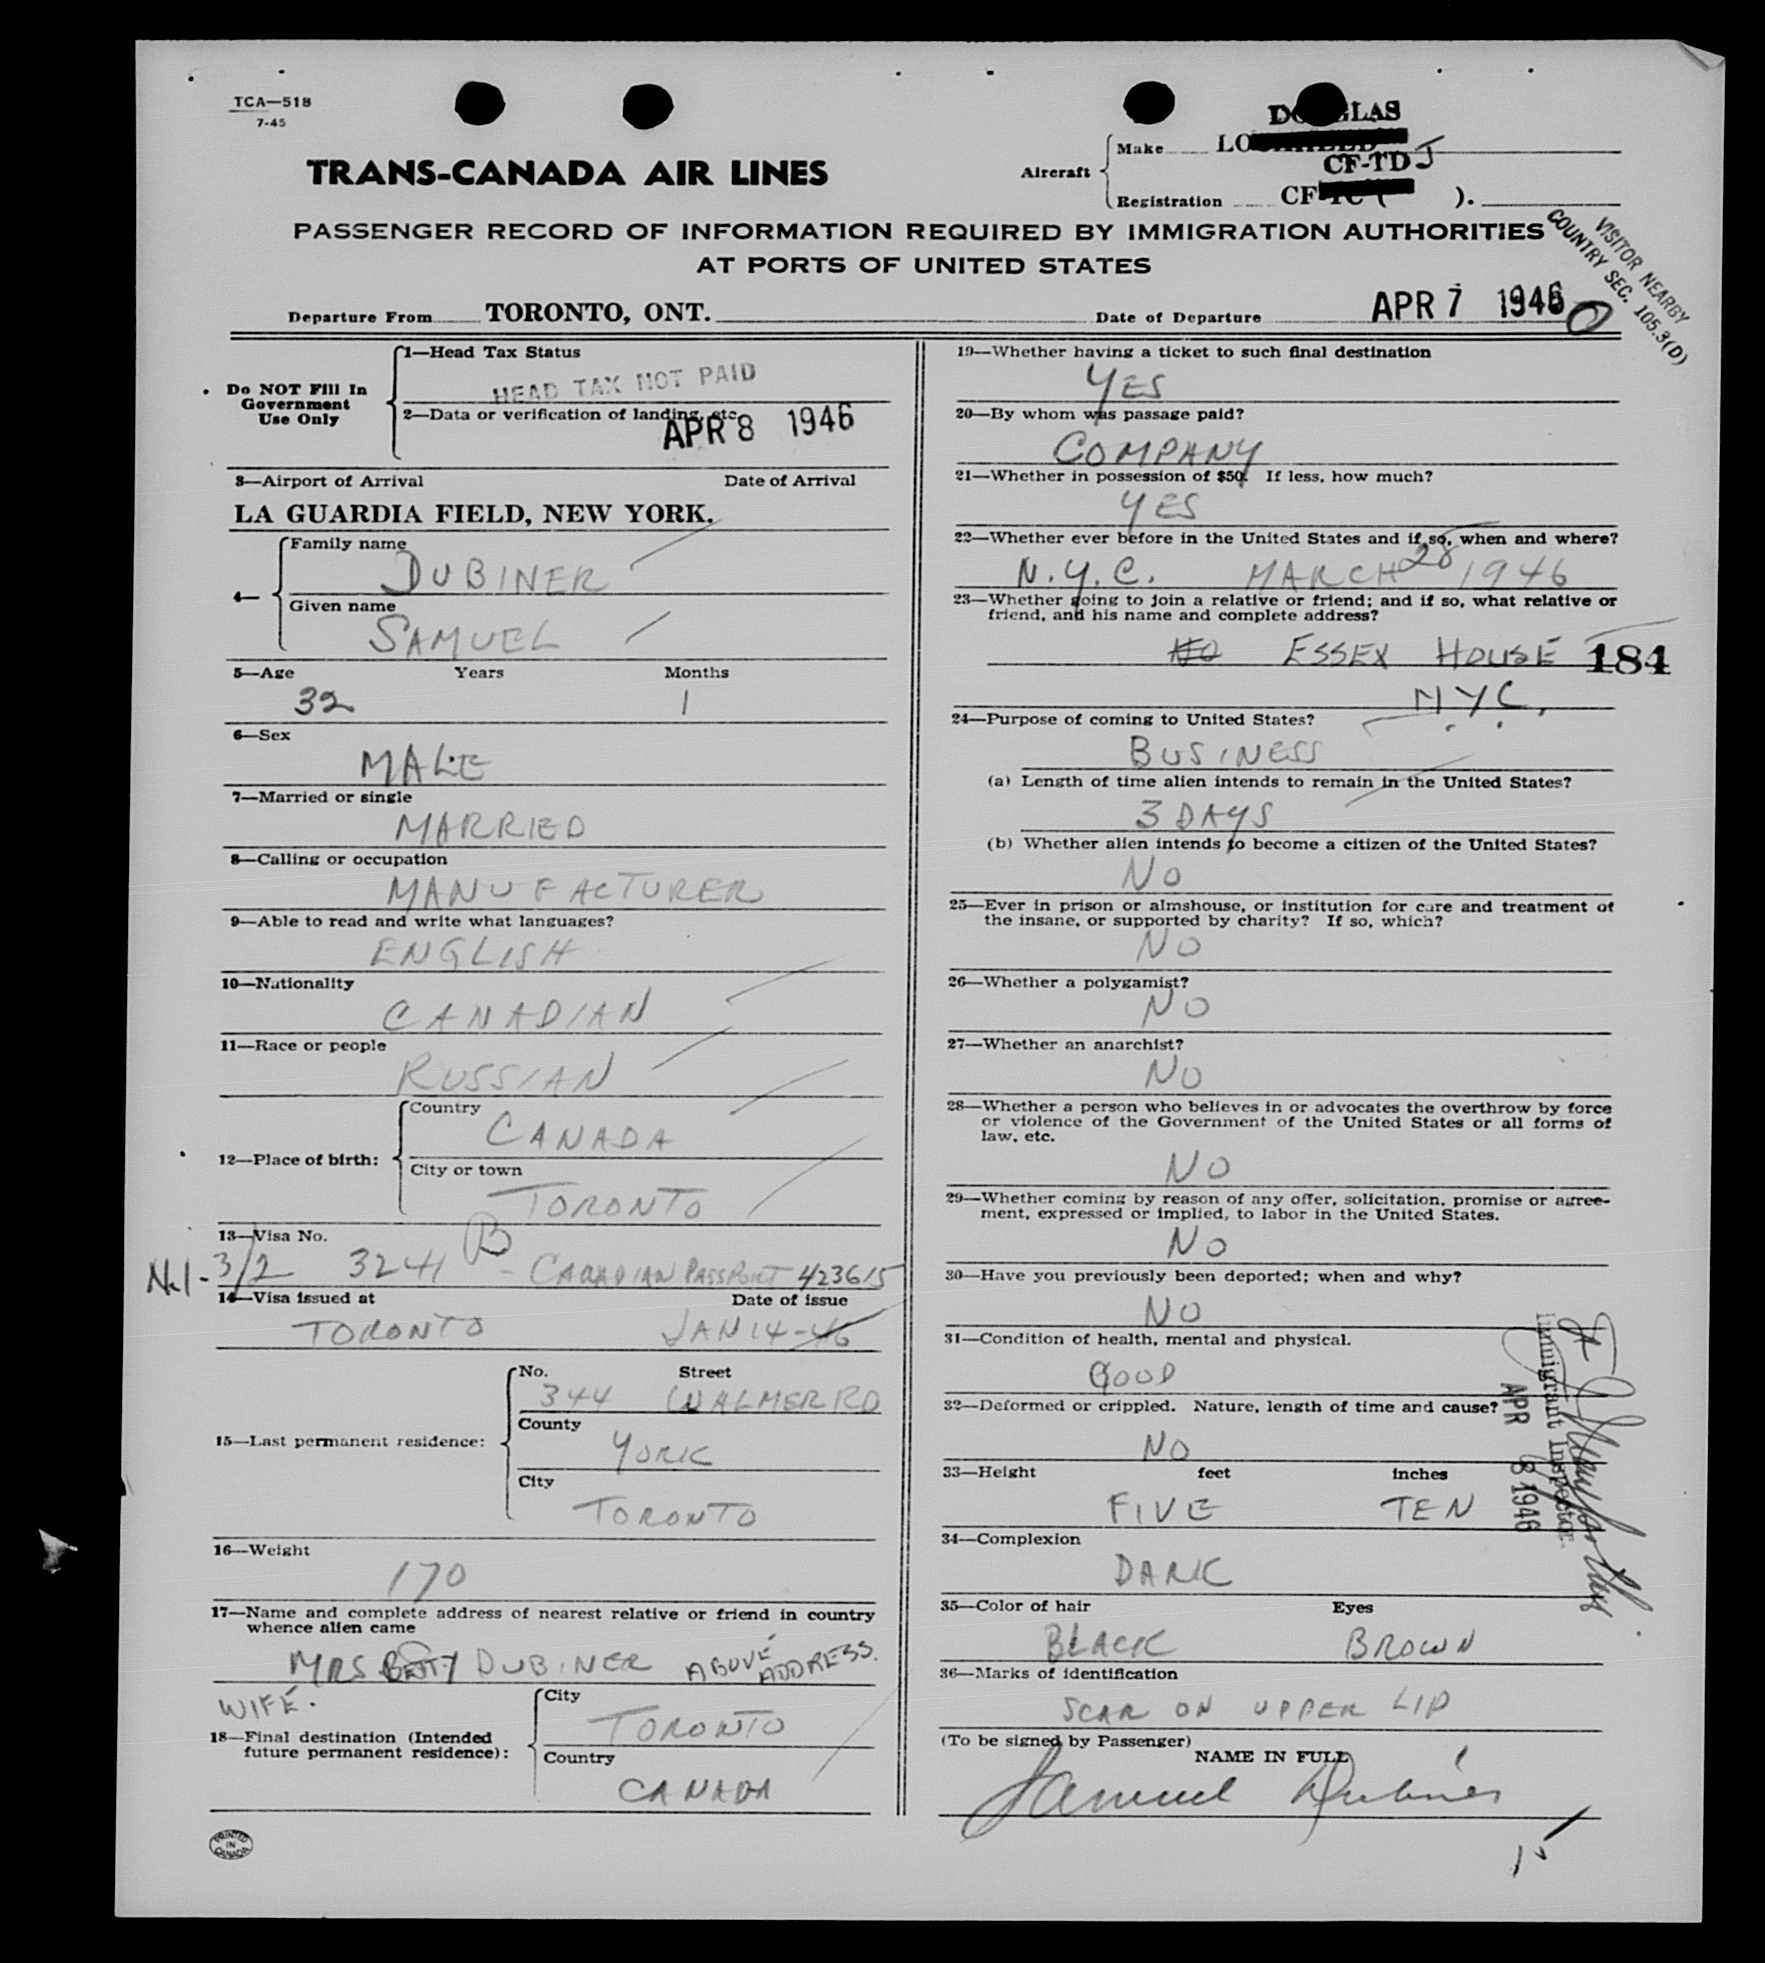 TCA—518
7-45
TRANS-CANADA AIR LINES
DOUGLAS
Aircraft
Make LO
CF-TDJ
Registration CF-TC ( ).
PASSENGER RECORD OF INFORMATION REQUIRED BY IMMIGRATION AUTHORITIES
AT PORTS OF UNITED STATES
VISITOR NEARBY
COUNTRY SEC. 105.3(D)
Departure From TORONTO, ONT.
Date of Departure APR 7 1946
Do NOT Fill In
Government
Use Only
1—Head Tax Status
HEAD TAX NOT PAID
2—Data or verification of landing, etc.
APR 8 1946
3—Airport of Arrival Date of Arrival
LA GUARDIA FIELD, NEW YORK.
4—
Family name
DUBINER
Given name
SAMUEL
5—Age Years Months
32 1
6—Sex
MALE
7—Married or single
MARRIED
8—Calling or occupation
MANUFACTURER
9—Able to read and write what languages?
ENGLISH
10—Nationality
CANADIAN
11—Race or people
RUSSIAN
12—Place of birth:
Country
CANADA
City or town
TORONTO
13—Visa No.
3/2 3241 B - CANADIAN PASSPORT 423615
14—Visa issued at Date of issue
TORONTO JAN 14-46
15—Last permanent residence:
No. Street
344 WALMER RD
County
YORK
City
TORONTO
16—Weight
170
17—Name and complete address of nearest relative or friend in country
whence alien came
MRS BETTY DUBINER ABOVE ADDRESS.
WIFE.
18—Final destination (Intended
future permanent residence):
City
TORONTO
Country
CANADA
PRINTED
IN
CANADA
19—Whether having a ticket to such final destination
YES
20—By whom was passage paid?
COMPANY
21—Whether in possession of $50. If less, how much?
YES
22—Whether ever before in the United States and if so, when and where?
N.Y.C. MARCH 28 1946
23—Whether going to join a relative or friend; and if so, what relative or
friend, and his name and complete address?
NO ESSEX HOUSE 184
N.Y.C.
24—Purpose of coming to United States?
BUSINESS
(a) Length of time alien intends to remain in the United States?
3 DAYS
(b) Whether alien intends to become a citizen of the United States?
NO
25—Ever in prison or almshouse, or institution for care and treatment of
the insane, or supported by charity? If so, which?
NO
26—Whether a polygamist?
NO
27—Whether an anarchist?
NO
28—Whether a person who believes in or advocates the overthrow by force
or violence of the Government of the United States or all forms of
law, etc.
NO
29—Whether coming by reason of any offer, solicitation, promise or agree-
ment, expressed or implied, to labor in the United States.
NO
30—Have you previously been deported; when and why?
NO
31—Condition of health, mental and physical.
GOOD
32—Deformed or crippled. Nature, length of time and cause?
NO
33—Height feet inches
FIVE TEN
34—Complexion
DARK
35—Color of hair Eyes
BLACK BROWN
36—Marks of identification
SCAR ON UPPER LIP
(To be signed by Passenger)
NAME IN FULL
Samuel Dubiner
Immigrant Inspector.
APR 8 1946